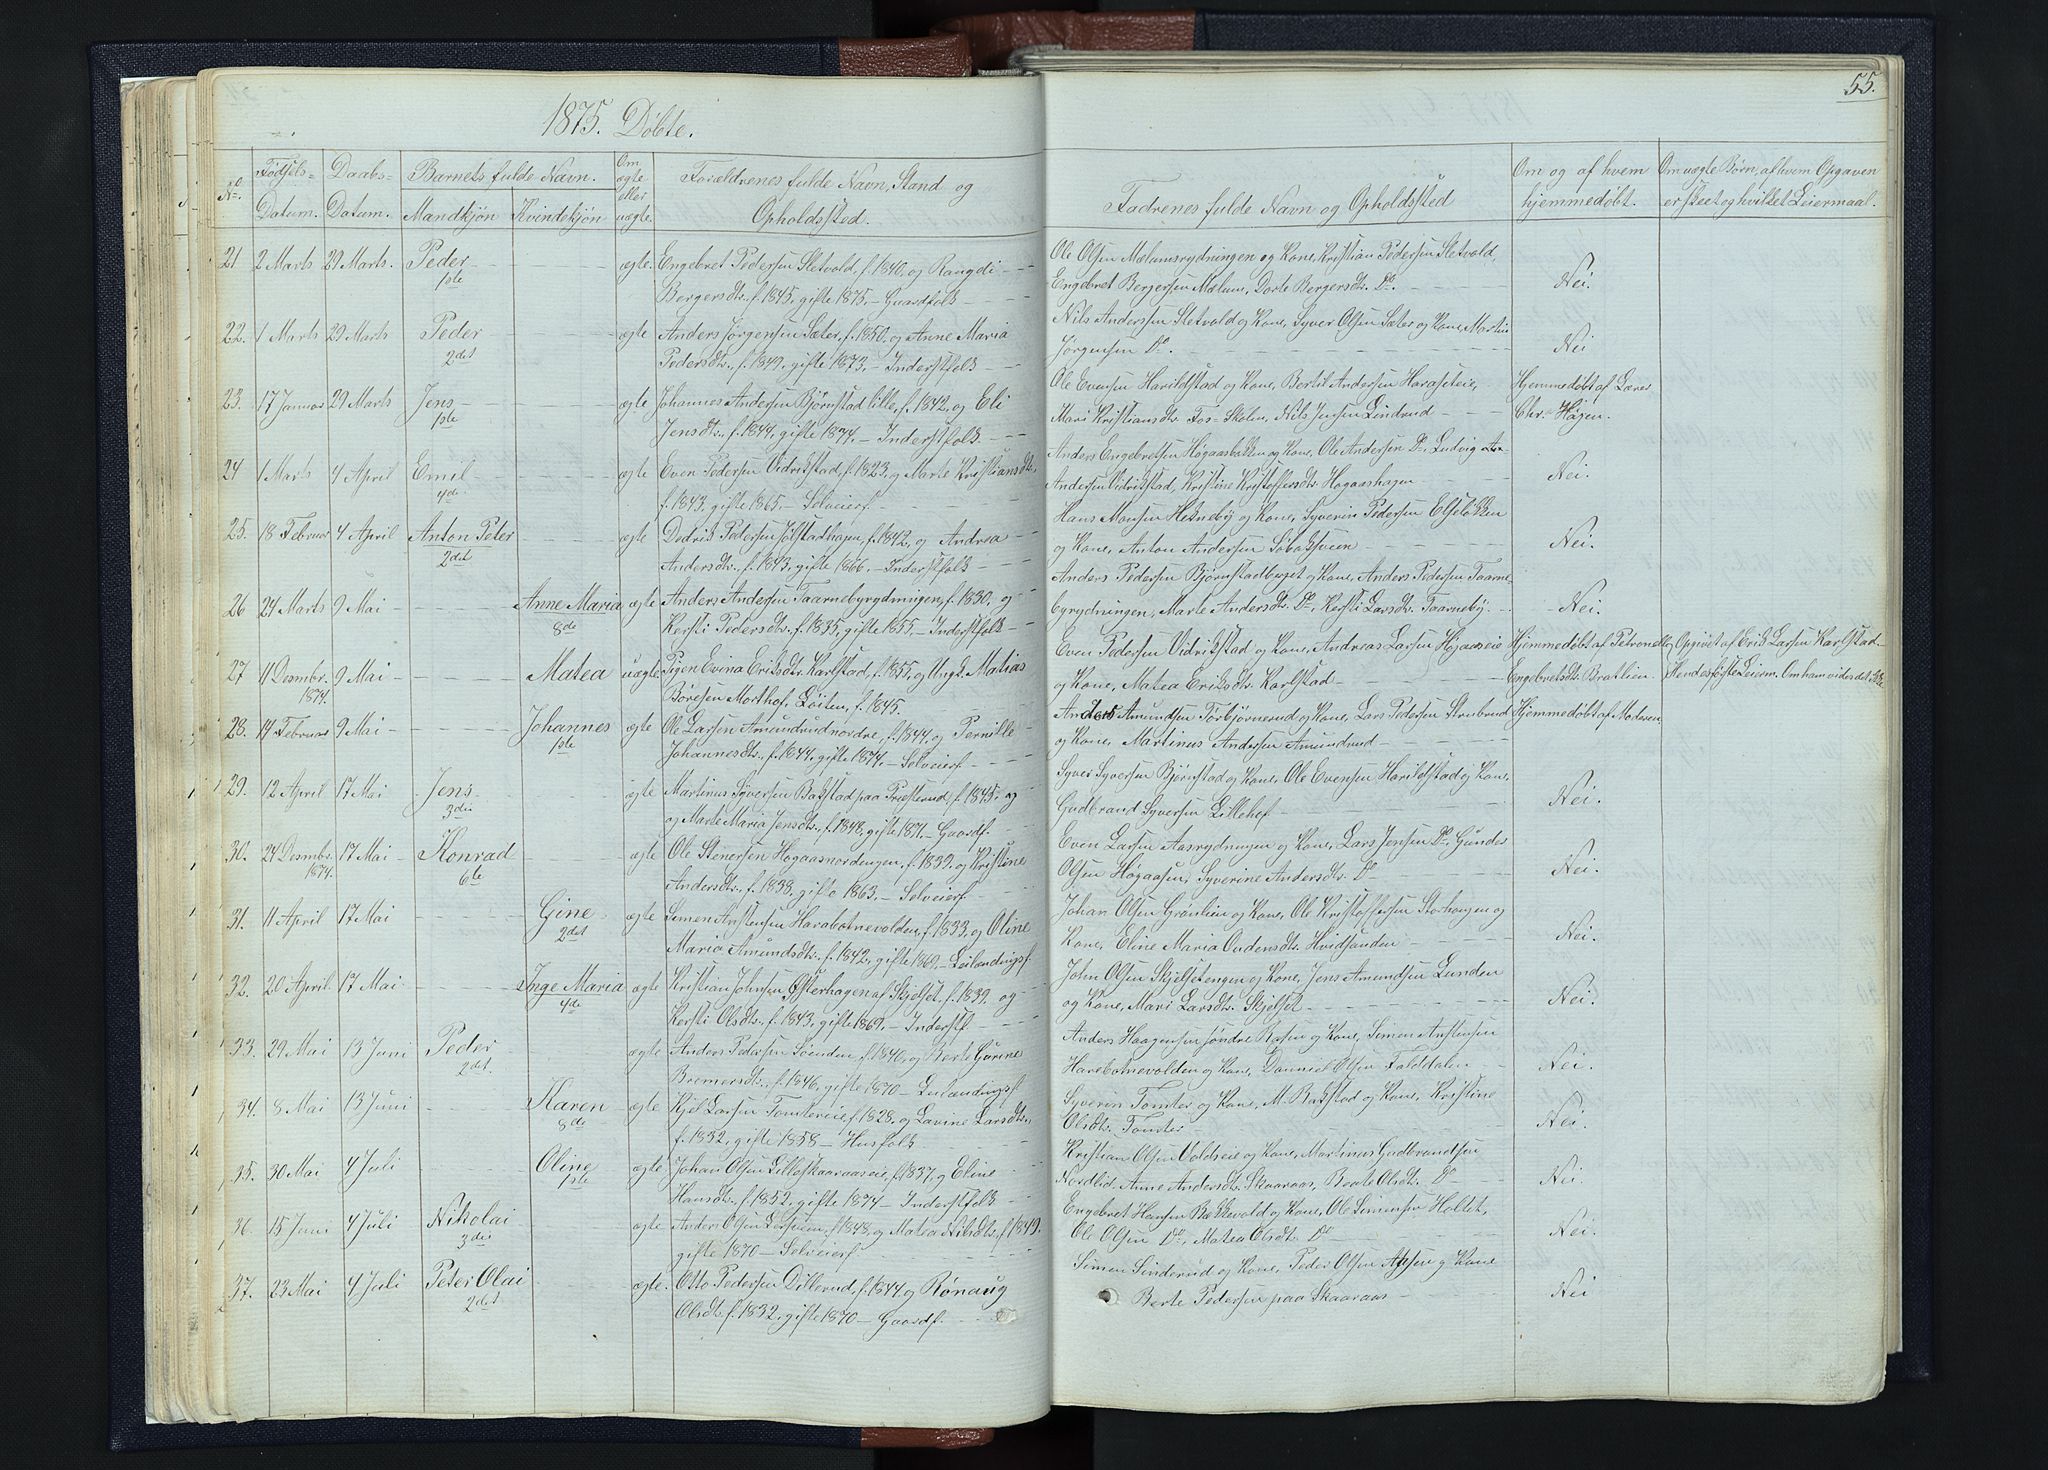 1875. Döbte.
55.
No.
Födsels-
Datum.
Daabs-
Datum.
Barnets fulde Navn.
Mandkjön
Kvindekjön
Om
ægte
eller
uægte.
Forældrenes fulde Navn, Stand og
Opholdssted.
Fadrenes fulde Navn og Opholdssted
Om og af hvem
hjemmedöbt.
Om uægte Börn, af hvem Opgaven
er skeet og hvilket Leiermaal.
21 2 Marts 29 Marts. Peder ægte. Engebret Pedersen Sletvold, f. 1840, og Rangdi
1ste Bergersdtr. f. 1845, gifte 1875, - Gaardfolk
Ole Olsen Mælumsrydningen og Kone, Kristian Pedersen Sletvold,
Engebret Bergersen Mælum, Dorte Bergersdtr. Do.
Nei.
22. 1 Marts 29 Marts Peder ægte Anders Jörgensen Sæter, f. 1850, og Anne Maria
2det Pedersdtr., f. 1849, gifte 1873, - Inderstfolk
Nils Andersen Sletvold og Kone, Syver Olsen Sæter og Kone, Martin
Jörgensen Do.
Nei
23. 17 Januar 29 Marts Jens ægte Johannes Andersen Björnstad lille, f. 1842, og Eli
1ste Jensdtr., f. 1844, gifte 1874, - Inderstfolk
Ole Evensen Harildstad og Kone, Bertil Andersen Haraseteie,
Mari Kristiansdtr. Fos-Skolen, Nils Jensen Linderud
Hjemmedöbt af Lærer
Chr. Högen.
24 1 Marts 4 April Emil ægte Even Pedersen Vidrikstad, f. 1823, og Marte Kristiansdtr.
4de f. 1843, gifte 1865. - Selveierf.
Anders Engebretsen Högaasbakken og Kone, Ole Andersen Do, Ludvig
Andersen Vidrikstad, Kristine Kristoffersdtr. Högaashagen
Nei.
25. 18 Februar 4 April Anton Peter ægte Dedrik Pedersen Jölstadhagen, f. 1842, og Andrea
2det Andersdtr., f. 1843, gifte 1866. - Inderstfolk
Hans Monsen Hekneby og Kone, Syverin Pedersen Elselökken
og Kone, Anton Andersen Söbaksveen
Nei.
26 24 Marts 9 Mai Anne Maria ægte Anders Andersen Taarnebyrydningen, f. 1830, og
8de Kersti Pedersdtr., f. 1835, gifte 1855. - Inderstfolk
Anders Pedersen Björnstadbygget og Kone, Anders Pedersen Taarne-
byrydningen, Marte Andersdtr. Do, Kersti Larsdtr. Taarneby.
Nei.
27 11 Desmbr. 9 Mai Matea uægte Pigen Evina Eriksdtr. Karlstad, f. 1855, og Ungk. Matias
1874. Böresen Morthof, Löiten, f. 1845.
Even Pedersen Vidrikstad og Kone, Andreas Larsen Höjaaseie
og Kone, Matea Eriksdtr. Karlstad
Hjemmedöbt af Petronelle
Engebretsdtr. Bratlien.
Opgivet af Erik Larsen Karlstad.
Hendes förste Leierm. Om ham vides det ikke
28. 14 Februar 9 Mai Johannes ægte Ole Larsen Amundrudnordre, f. 1844, og Pernille
1ste Johannesdtr., f. 1844, gifte 1874. - Selveierf.
Anders Amundsen Torbjörnrud og Kone, Lars Pedersen Strubrud
og Kone, Martinus Andersen Amundrud
Hjemmedöbt af Moderen
29. 12 April 17 Mai Jens ægte Martinus Syversen Bakstad paa Præsterud, f. 1845, og
3die og Marte Maria Jensdtr., f. 1848, gifte 1871. - Gaardf.
Syver Syversen Björnstad og Kone, Ole Evensen Harildstad og Kone,
Gudbrand Syversen Lillehof
Nei.
30. 24 Desmbr. 17 Mai Konrad ægte Ole Stenersen Högaasnordengen, f. 1839, og Kristine
1874. 6te Andersdtr., f. 1838, gifte 1863. - Selveierf.
Even Larsen Aasrydningen og Kone, Lars Jensen Do, Gunder
Olsen Högaasen, Syverine Andersdtr. Do
Nei.
31. 11 April 17 Mai Gine ægte Simen Anstensen Harabotnevolden, f. 1833, og Oline
2det Maria Amundsdtr., f. 1842, gifte 1869. - Leilændingsf.
Johan Olsen Grönlien og Kone, Ole Kristoffersen Storhaugen og
Kone, Eline Maria Ovdensdtr. Hvidsanden
Nei.
32. 20 April 17 Mai Inge Maria ægte Kristian Johnsen Österhagen af Skjelset, f. 1839, og
4de Kersti Olsdtr., f. 1843, gifte 1869. - Inderstf.
John Olsen Skjelsetengen og Kone, Jens Amundsen Lunden
og Kone, Mari Larsdtr. Skjelset
Nei.
33. 29 Mai 13 Juni Peder ægte Anders Pedersen Löenden, f. 1840, og Berte Gurine
2det. Bremersdtr., f. 1846, gifte 1870 - Leilændingsf.
Anders Haagensen söndre Rasen og Kone, Simen Anstensen
Harebotnevolden og Kone, Danniel Olsen Falddalen
Nei.
34. 8 Mai 13 Juni Karen ægte Kjel Larsen Tomtereie, f. 1828, og Lavine Larsdtr.,
8de f. 1832, gifte 1858 - Husfolk
Syverin Tomter og Kone, M. Bakstad og Kone, Kristine
Olsdtr. Tomter
Nei.
35. 30 Mai 4 Juli Oline ægte Johan Olsen Lilleskaaraaseie, f. 1837, og Eline
1ste Hansdtr., f. 1852, gifte 1874 - Inderstfolk
Kristian Olsen Voldseie og Kone, Martinus Gudbrandsen
Nordlid, Anne Andersdtr. Skaaraas, Beate Olsdt. Do
Nei.
36. 15 Juni 4 Juli Nikolai ægte Anders Olsen f. 1848, og Matea Nilsdtr., f. 1849.
3die gifte 1870 - Selveierf.
Engebret Hansen Bækkevold og Kone, Ole Simensen Holtet,
Ole Olsen Do, Matea Olsdt. Do
Nei.
37. 23 Mai 4 Juli Peter Olai ægte. Otto Pedersen Dillerud, f. 1844 og Rönaug
2det Olsdt. f. 1832, gifte 1870 - Gaardf.
Simen Sinderud og Kone, Peder Olsen og Kone
Berte Pedersen paa Skaaraas
Nei